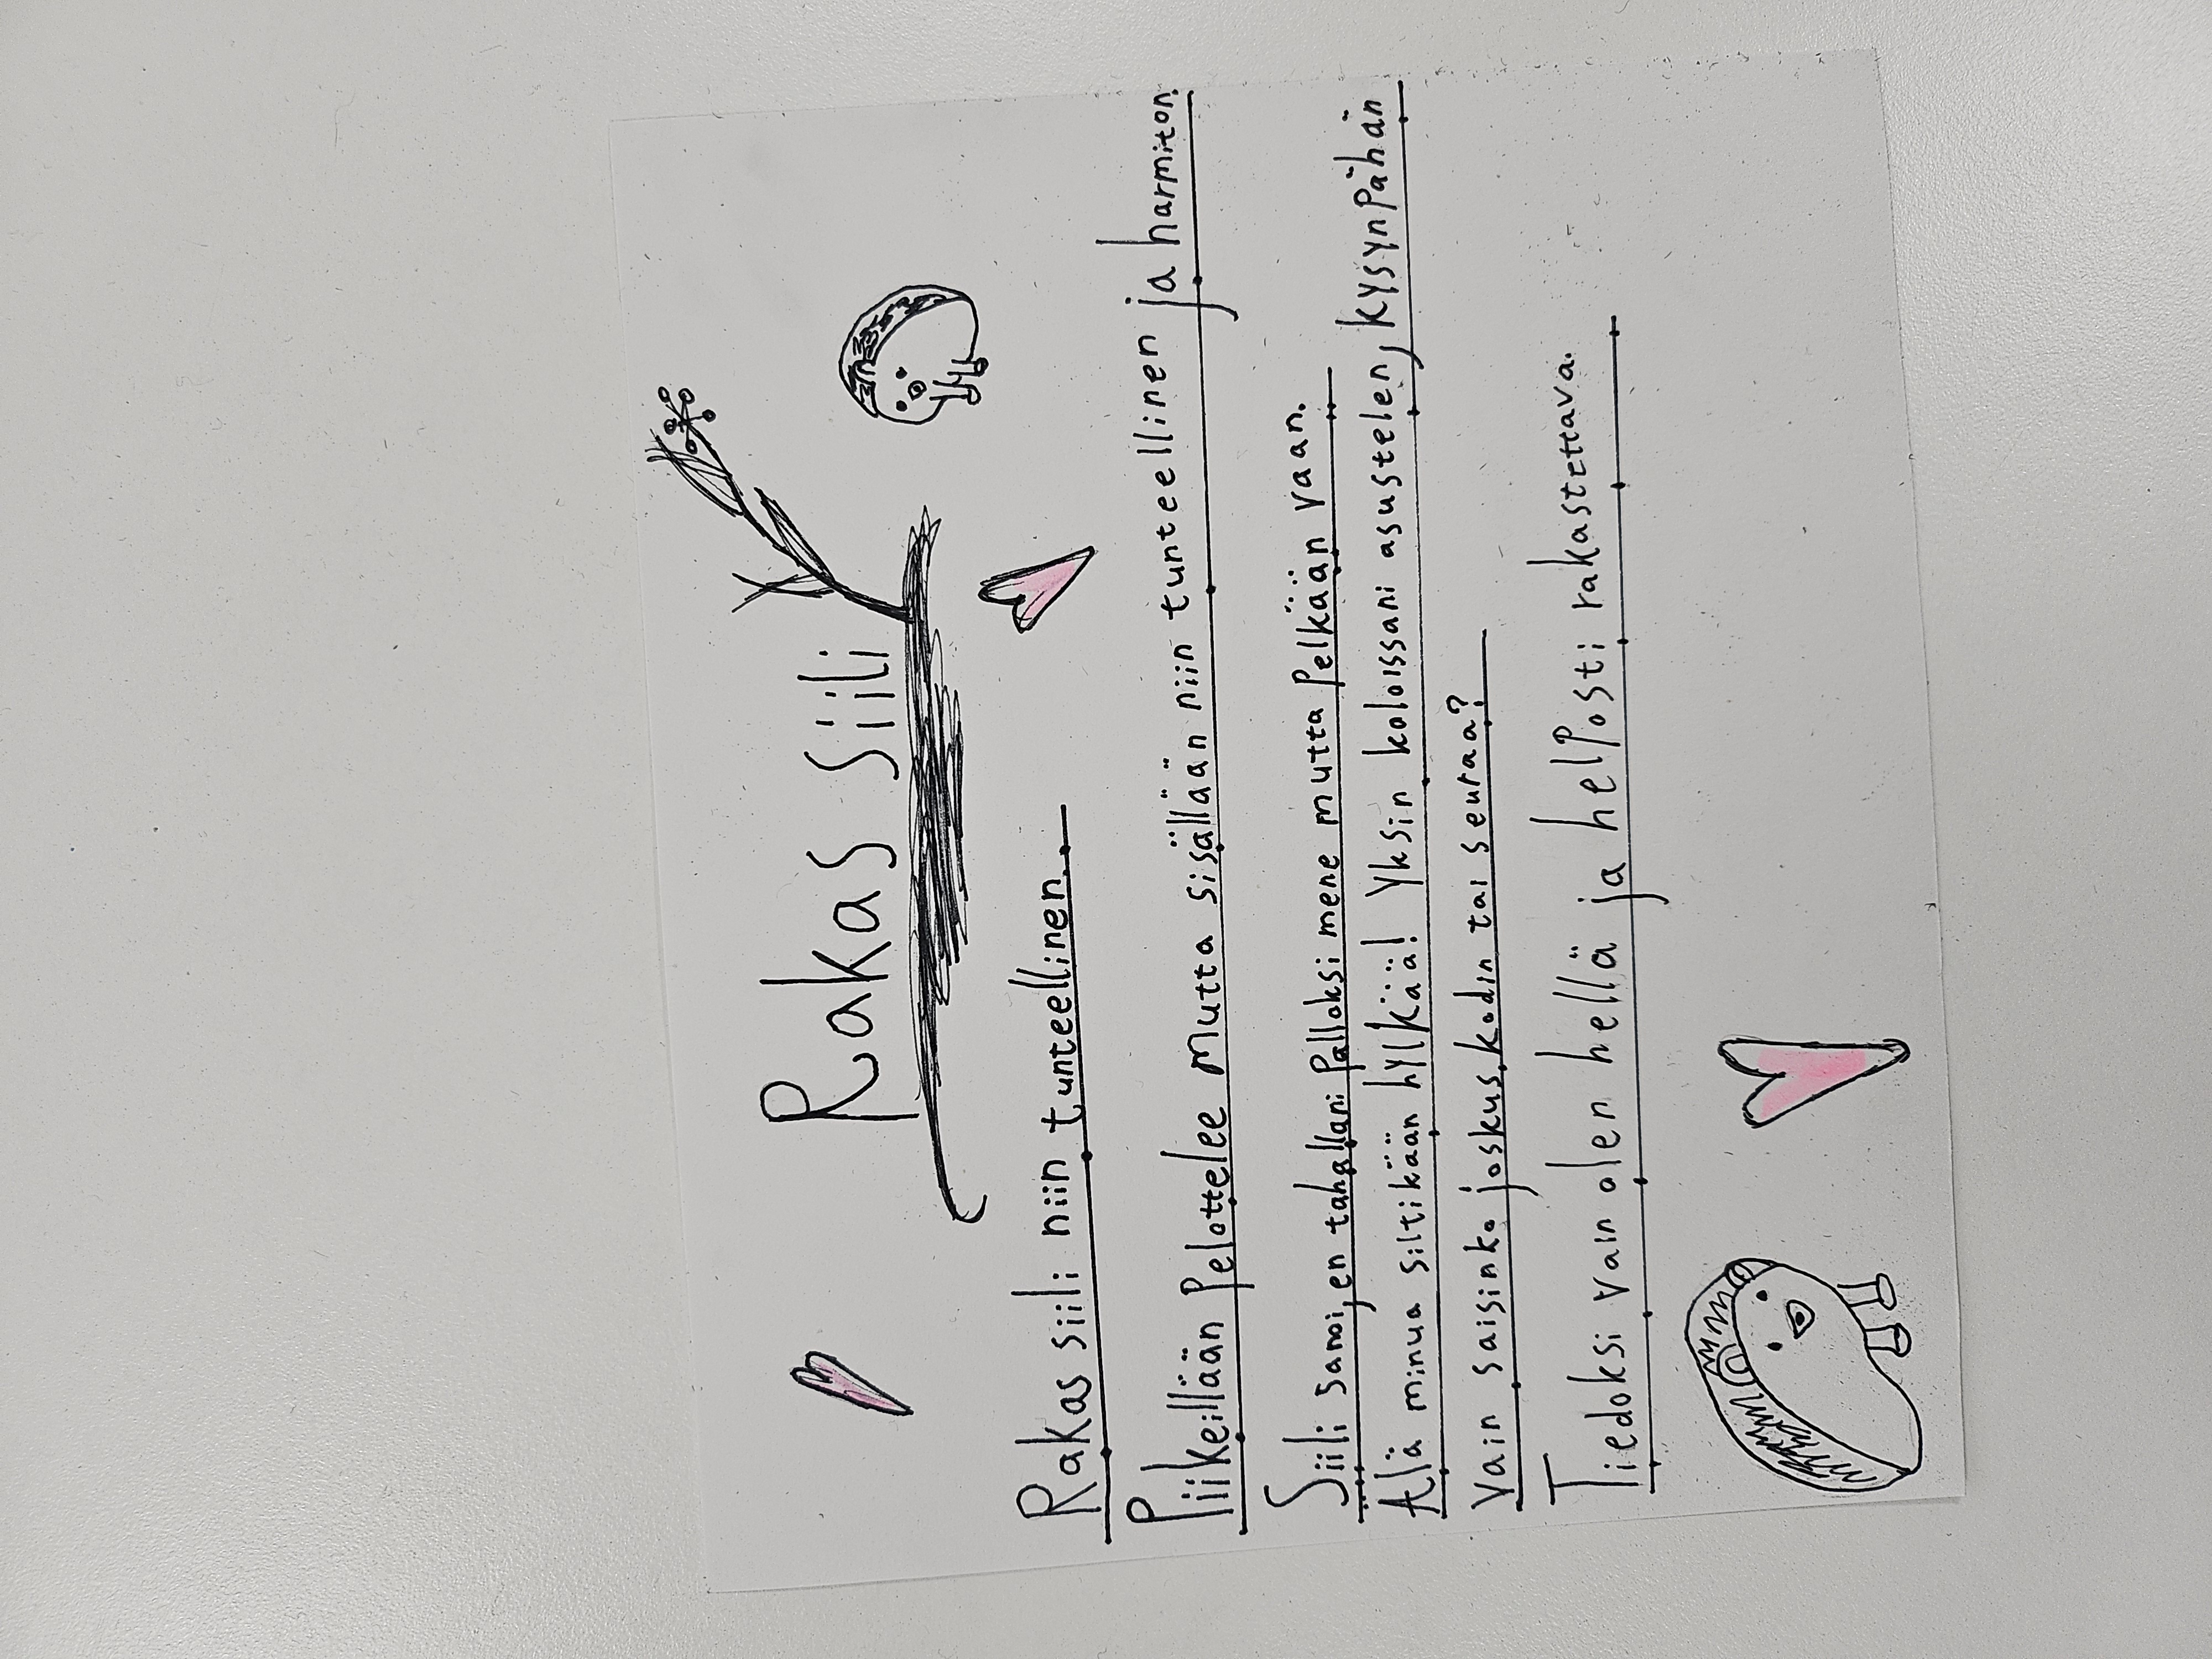 Rakas siili
Rakas siili niin tunteellinen.
Piikeillään pelottelee mutta sisällään niin tunteellinen ja harmiton.
Siili sanoi, en tahallani palloksi mene mutta pelkään vaan.
Älä minua siltikään hylkää! Yksin koloissani asustelen, kysynpähän
vain saisinko joskus kodin tai seuraa?
Tiedoksi vain olen hellä ja helposti rakastettava.